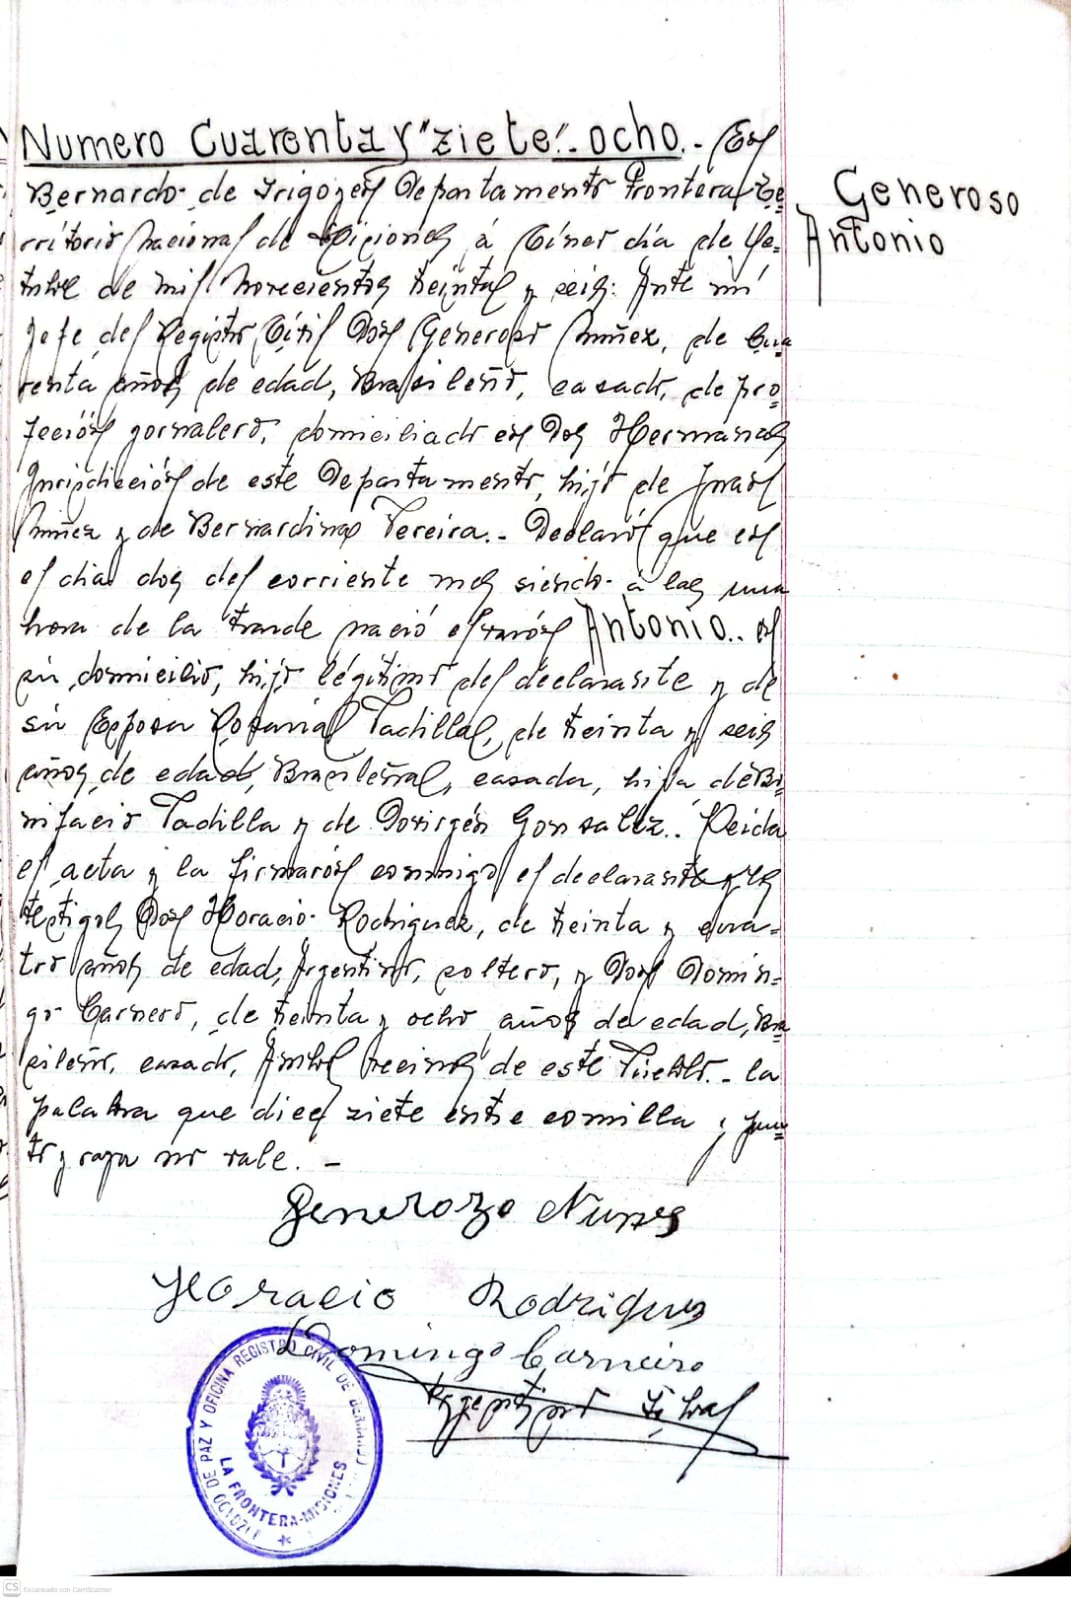 Numero Cuarenta y "ziete".- ocho.- En
Generoso
Antonio
Bernardo de Irigoyen Departamento Frontera Te=
rritorio Nacional de Misiones á Cinco dia de
de mil novecientos treinta y seis: Ante mi
Jefe del Registro Civil Don Generoso Nuñez, de Cua=
renta años de edad, Brasileño, casado, de pro=
feción jornalero, domiciliado en Dos Hermanas
Juridicción de este Departamento, hijo de Juan
Nuñez y de Bernardina Pereira.- Declaró que en
el dia dos del corriente mes siendo á las una
hora de la trarde nació el varón Antonio.. en
su domicilio, hijo légitimo del declarante y de
su Esposa Rosaria Padilla, de treinta y seis
años de edad, Brasileña, casada, hija de Bo=
nifacio Padilla y de Gonzalez.. Leida
el acta y la firmarón conmigo el declarante y los
testigos Don Horacio Rodriguez, de treinta y cua=
tro años de edad, Argentino, soltero, y Don Domin=
go Carnero, de treinta y ocho años de edad, Bra
sileño, casado, Ambos vecinos de este Pueblo.- la
palabra que dice ziete entre comilla y pun=
to y raya no vale. -
Generozo Nunes
Horacio Rodrigues
Domingo Carneiro
DE PAZ Y OFICINA REGISTRO CIVIL DE
LA FRONTERA-MISIONES
CS Escaneado con CamScanner